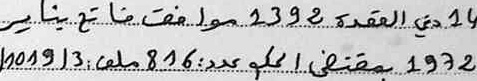 14 ذي القعدة 1392 موافقت فاتح يناير
1972 بمقتضى الحكم عدد: 816 ملف: 1019/3